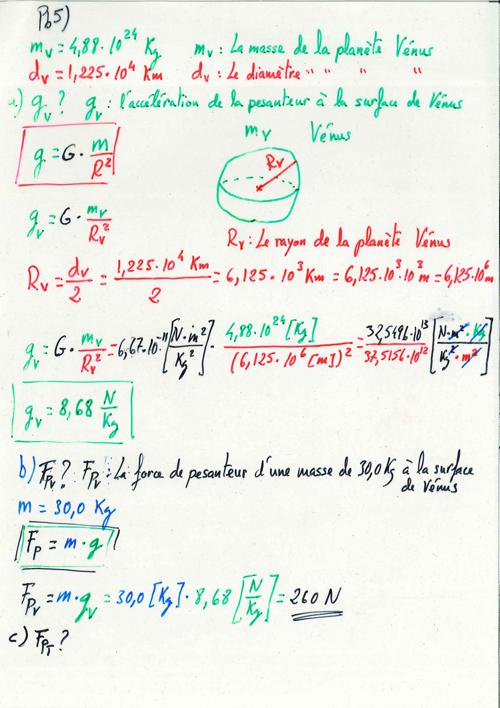 Pb5)
m_v = 4,88 · 10^24 Kg   m_v : La masse de la planète Vénus
d_v = 1,225 · 10^4 Km   d_v : Le diamètre " " " "
a) g_v ? g_v : l'accélération de la pesanteur à la surface de Vénus
m_v Vénus
g = G · m/R^2
R_v
g_v = G · m_v/R_v^2
R_v : Le rayon de la planète Vénus
R_v = d_v/2 = 1,225 · 10^4 Km/2 = 6,125 · 10^3 Km = 6,125 · 10^3 · 10^3 m = 6,125 · 10^6 m
g_v = G · m_v/R_v^2 = 6,67 · 10^-11 [N · m^2/Kg^2] · 4,88 · 10^24 [Kg]/(6,125 · 10^6 [m])^2 = 32,5496 · 10^13/37,5156 · 10^12 [N · m^2 · Kg/Kg^2 · m^2]
g_v = 8,68 N/Kg
b) F_Pv ? F_Pv : La force de pesanteur d'une masse de 30,0 Kg à la surface
de Vénus
m = 30,0 Kg
F_P = m · g
F_Pv = m · g_v = 30,0 [Kg] · 8,68 [N/Kg] = 260 N
c) F_PT ?